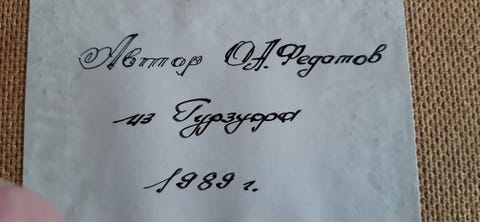 Автор О.А.Федотов
из Гурзуфа
1989 г.